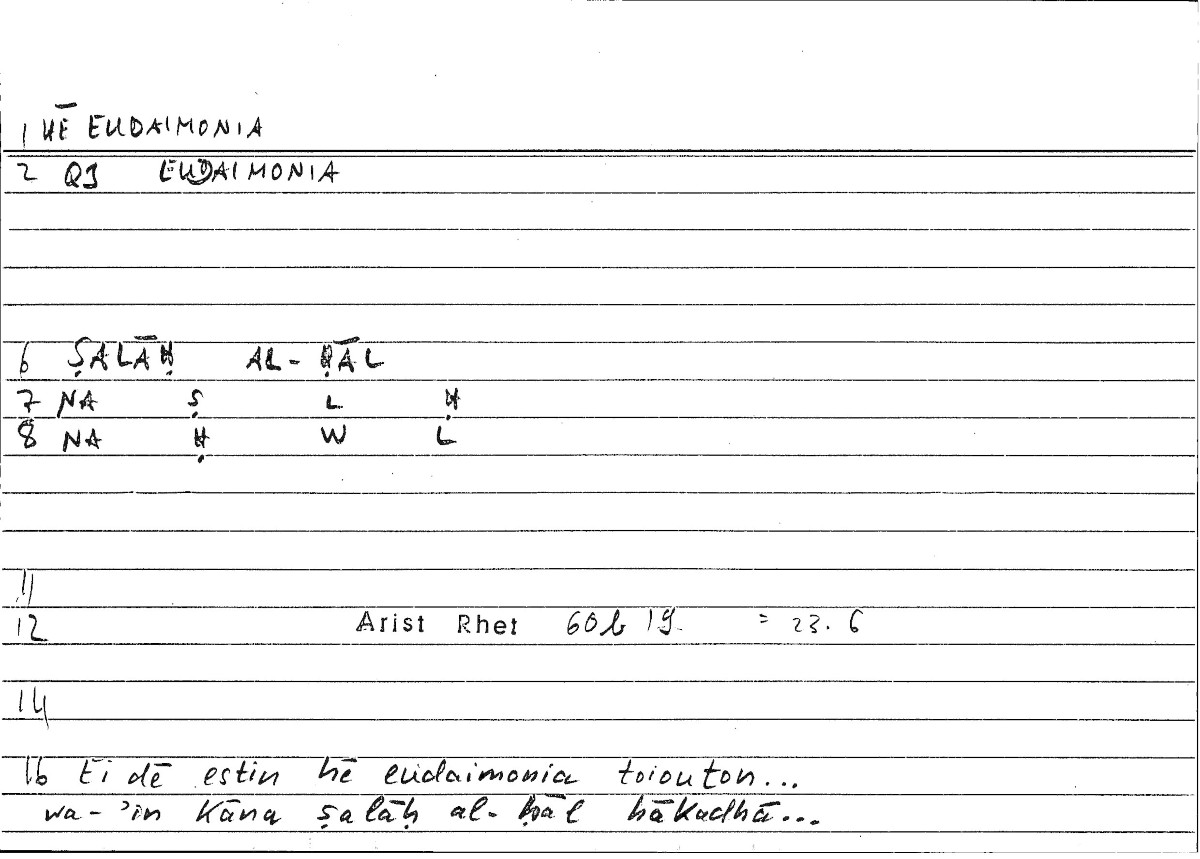 1 HĒ EUDAIMONIA
2 QJ EUDAIMONIA
6 ṢALĀḤ AL-ḤĀL
7 NA Ṣ L Ḥ
8 NA Ḥ W L
11
12 Arist Rhet 60b 19 = 23.6
14
16 Ei dē estin hē eudaimonia toiouton...
wa-'in kāna ṣalāḥ al-ḥāl hākadhā...